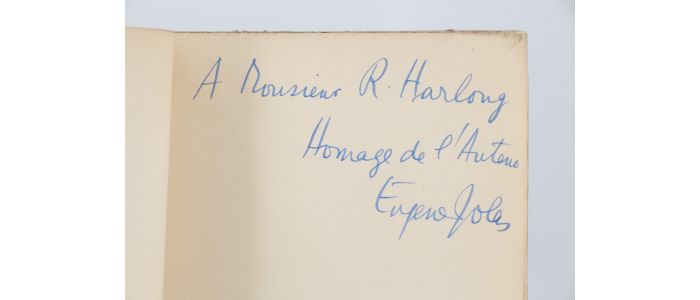 A Monsieur R. Harlong
Homage de l'Auteur
Eugene Jolas